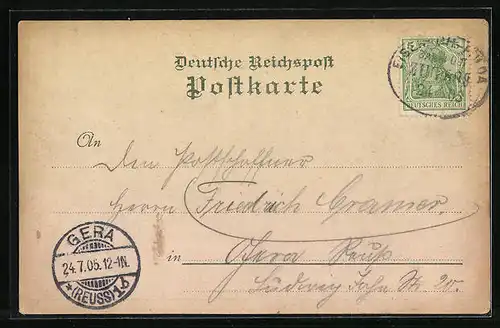 Deutsche Reichspost
Postkarte
DEUTSCHES REICH
An
den Postschaffner
Herrn Friedrich Cramer
in Gera Reuß
Ludwig Jahn Str. 20.
GERA
24.7.05.12-1N.
*(REUSS)1b